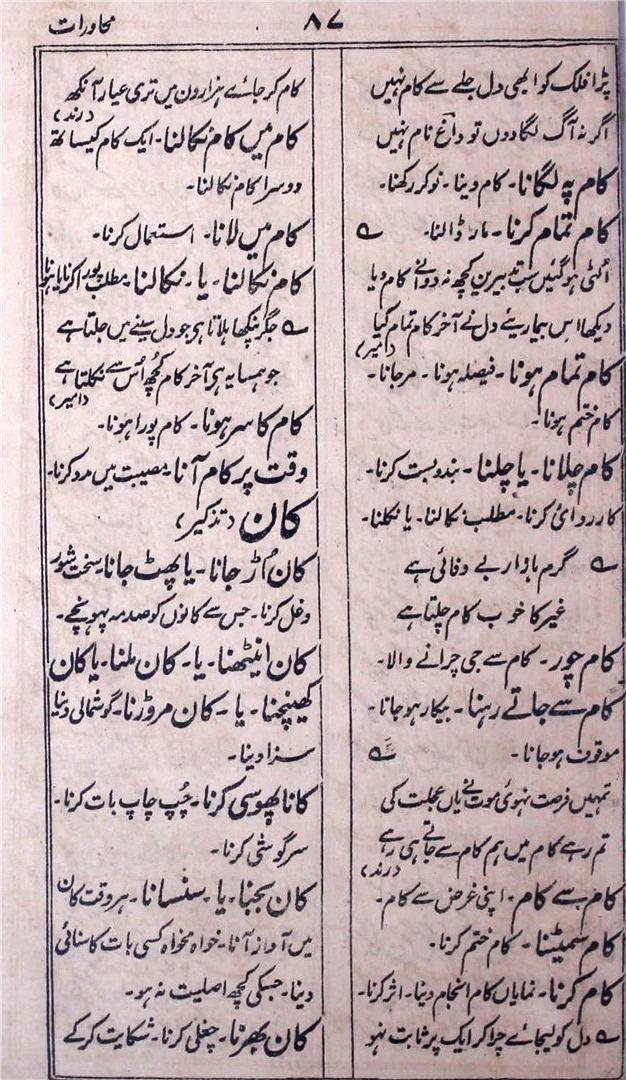 محاورات
۸۷
پڑا فلک کو ابھی دل جلے سے کام نہیں
اگر نہ آگ لگا دوں تو داغ نام نہیں
کام پہ لگانا۔ کام دینا۔ نوکر رکھنا۔
کام تمام کرنا۔ مار ڈالنا۔ ؎
الٹی ہوگئیں سب تدبیریں کچھ نہ دوا نے کام دیا
دیکھا اس بیماریٔے دل نے آخر کام تمام کیا
(میر)
کام تمام ہونا۔ فیصلہ ہونا۔ مرجانا۔
کام ختم ہونا۔
کام چلانا۔ یا چلنا۔ بندوبست کرنا۔
کارروائی کرنا۔ مطلب نکالنا۔ یا نکلنا۔
؎ گرم بازار بے وفائی ہے
غیر کا خوب کام چلتا ہے
کام چور۔ کام سے جی چرانے والا۔
کام سے جاتے رہنا۔ بیکار ہوجانا۔
موقوف ہوجانا۔ ؎
تمہیں فرصت نہوئی موت نے یاں عجلت کی
تم رہے کام میں ہم کام سے جاتے ہی رہے
(رند)
کام سے کام۔ اپنی غرض سے کام۔
کام سمیٹنا۔ کام ختم کرنا۔
کام کرنا۔ نمایاں کام انجام دینا۔ اثر کرنا۔
؎ دل کو لیجائے چرا کر ایک پر ثابت نہو
کام کر جائے ہزاروں میں تری عیار آنکھ
(رند)
کام میں کام نکالنا۔ ایک کام کیساتھ
دوسرا کام نکالنا۔
کام میں لانا۔ استعمال کرنا۔
کام نکالنا۔ یا۔ نکالنا۔ مطلب پورا کرنا یا ہونا
؎ جگر پنکھا ہلاتا ہی جو دل سینے میں جلتا ہے
جو ہمسایہ ہی آخر کام کچھ اُس سے نکلتا ہے
(امیر)
کام کا سر ہونا۔ کام پورا ہونا۔
وقت پر کام آنا۔ مصیبت میں مدد کرنا۔
کان (تذکیر)
کان اُڑ جانا۔ یا پھٹ جانا۔ سخت شور
وغل کرنا۔ جس سے کانوں کو صدمہ پہونچے۔
کان اینٹھنا۔ یا۔ کان ملنا۔ یا کان
کھینچنا۔ یا۔ کان مروڑنا۔ گوشمالی دینا
سزا دینا۔
کانا پھوسی کرنا۔ چُپ چاپ بات کرنا۔
سرگوشی کرنا۔
کان بجنا۔ یا۔ سنسانا۔ ہر وقت کان
میں آواز آنا۔ خواہ مخواہ کسی بات کا سنائی
دینا۔ جسکی کچھ اصلیت نہ ہو۔
کان بھرنا۔ چغلی کرنا۔ شکایت کرکے